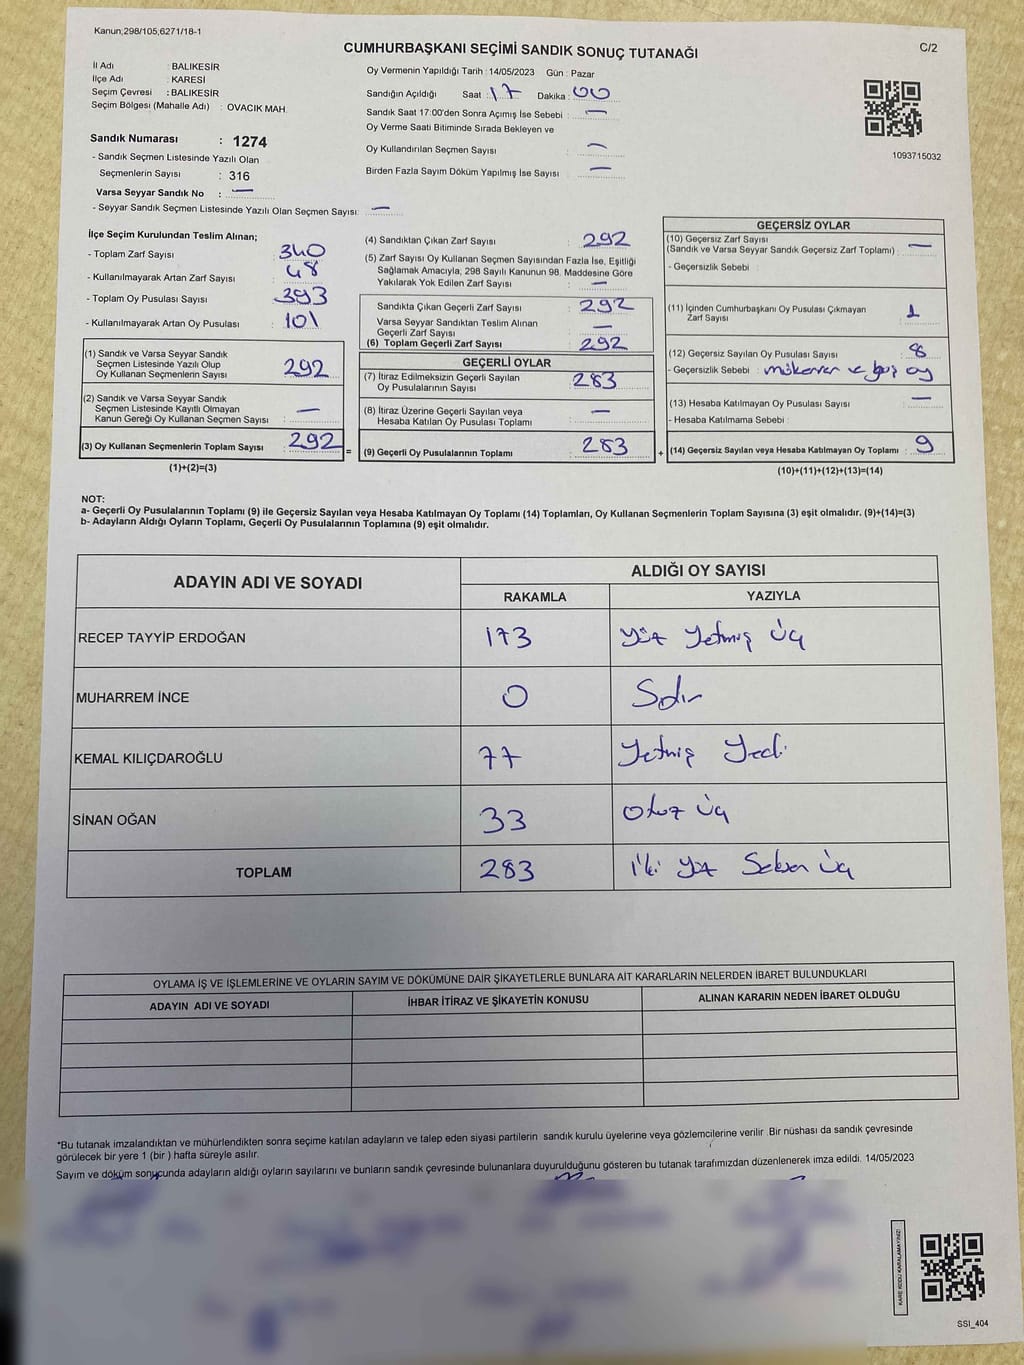 Kanun;298/105,6271/18-1
CUMHURBAŞKANI SEÇİMİ SANDIK SONUÇ TUTANAĞI
C/2
İl Adı : BALIKESİR
İlçe Adı : KARESİ
Seçim Çevresi : BALIKESİR
Seçim Bölgesi (Mahalle Adı) : OVACIK MAH.
Sandık Numarası : 1274
- Sandık Seçmen Listesinde Yazılı Olan
Seçmenlerin Sayısı : 316
Varsa Seyyar Sandık No : —
- Seyyar Sandık Seçmen Listesinde Yazılı Olan Seçmen Sayısı: —
Oy Vermenin Yapıldığı Tarih : 14/05/2023 Gün : Pazar
Sandığın Açıldığı Saat : 17 Dakika : 00
Sandık Saat 17:00'den Sonra Açımış İse Sebebi : —
Oy Verme Saati Bitiminde Sırada Bekleyen ve
Oy Kullandırılan Seçmen Sayısı : —
Birden Fazla Sayım Döküm Yapılmış İse Sayısı : —
1093715032
İlçe Seçim Kurulundan Teslim Alınan;
- Toplam Zarf Sayısı : 340
- Kullanılmayarak Artan Zarf Sayısı : 48
- Toplam Oy Pusulası Sayısı : 393
- Kullanılmayarak Artan Oy Pusulası : 101
(1) Sandık ve Varsa Seyyar Sandık
Seçmen Listesinde Yazılı Olup
Oy Kullanan Seçmenlerin Sayısı : 292
(2) Sandık ve Varsa Seyyar Sandık
Seçmen Listesinde Kayıtlı Olmayan
Kanun Gereği Oy Kullanan Seçmen Sayısı : —
(3) Oy Kullanan Seçmenlerin Toplam Sayısı : 292
(1)+(2)=(3)
(4) Sandıktan Çıkan Zarf Sayısı : 292
(5) Zarf Sayısı Oy Kullanan Seçmen Sayısından Fazla İse, Eşitliği
Sağlamak Amacıyla, 298 Sayılı Kanunun 98. Maddesine Göre
Yakılarak Yok Edilen Zarf Sayısı : —
Sandıkta Çıkan Geçerli Zarf Sayısı : 292
Varsa Seyyar Sandıktan Teslim Alınan
Geçerli Zarf Sayısı : —
(6) Toplam Geçerli Zarf Sayısı : 292
GEÇERLİ OYLAR
(7) İtiraz Edilmeksizin Geçerli Sayılan
Oy Pusulalarının Sayısı : 283
(8) İtiraz Üzerine Geçerli Sayılan veya
Hesaba Katılan Oy Pusulası Toplamı : —
= (9) Geçerli Oy Pusulalarının Toplamı : 283
GEÇERSİZ OYLAR
(10) Geçersiz Zarf Sayısı
(Sandık ve Varsa Seyyar Sandık Geçersiz Zarf Toplamı) : —
- Geçersizlik Sebebi :
(11) İçinden Cumhurbaşkanı Oy Pusulası Çıkmayan
Zarf Sayısı : 1
(12) Geçersiz Sayılan Oy Pusulası Sayısı : 8
- Geçersizlik Sebebi : mükerrer ve boş oy
(13) Hesaba Katılmayan Oy Pusulası Sayısı : —
- Hesaba Katılmama Sebebi :
+ (14) Geçersiz Sayılan veya Hesaba Katılmayan Oy Toplamı : 9
(10)+(11)+(12)+(13)=(14)
NOT:
a- Geçerli Oy Pusulalarının Toplamı (9) ile Geçersiz Sayılan veya Hesaba Katılmayan Oy Toplamı (14) Toplamları, Oy Kullanan Seçmenlerin Toplam Sayısına (3) eşit olmalıdır. (9)+(14)=(3)
b- Adayların Aldığı Oyların Toplamı, Geçerli Oy Pusulalarının Toplamına (9) eşit olmalıdır.
ADAYIN ADI VE SOYADI
ALDIĞI OY SAYISI
RAKAMLA YAZIYLA
RECEP TAYYİP ERDOĞAN 173 Yüz Yetmiş Üç
MUHARREM İNCE 0 Sıfır
KEMAL KILIÇDAROĞLU 77 Yetmiş Yedi
SİNAN OĞAN 33 Otuz Üç
TOPLAM 283 İki Yüz Seksen Üç
OYLAMA İŞ VE İŞLEMLERİNE VE OYLARIN SAYIM VE DÖKÜMÜNE DAİR ŞİKAYETLERLE BUNLARA AİT KARARLARIN NELERDEN İBARET BULUNDUKLARI
ADAYIN ADI VE SOYADI İHBAR İTİRAZ VE ŞİKAYETİN KONUSU ALINAN KARARIN NEDEN İBARET OLDUĞU
*Bu tutanak imzalandıktan ve mühürlendikten sonra seçime katılan adayların ve talep eden siyasi partilerin sandık kurulu üyelerine veya gözlemcilerine verilir. Bir nüshası da sandık çevresinde
görülecek bir yere 1 (bir ) hafta süreyle asılır.
Sayım ve döküm sonucunda adayların aldığı oyların sayılarını ve bunların sandık çevresinde bulunanlara duyurulduğunu gösteren bu tutanak tarafımızdan düzenlenerek imza edildi. 14/05/2023
KARE KODU KARALAMAYINIZ!
SSI_404